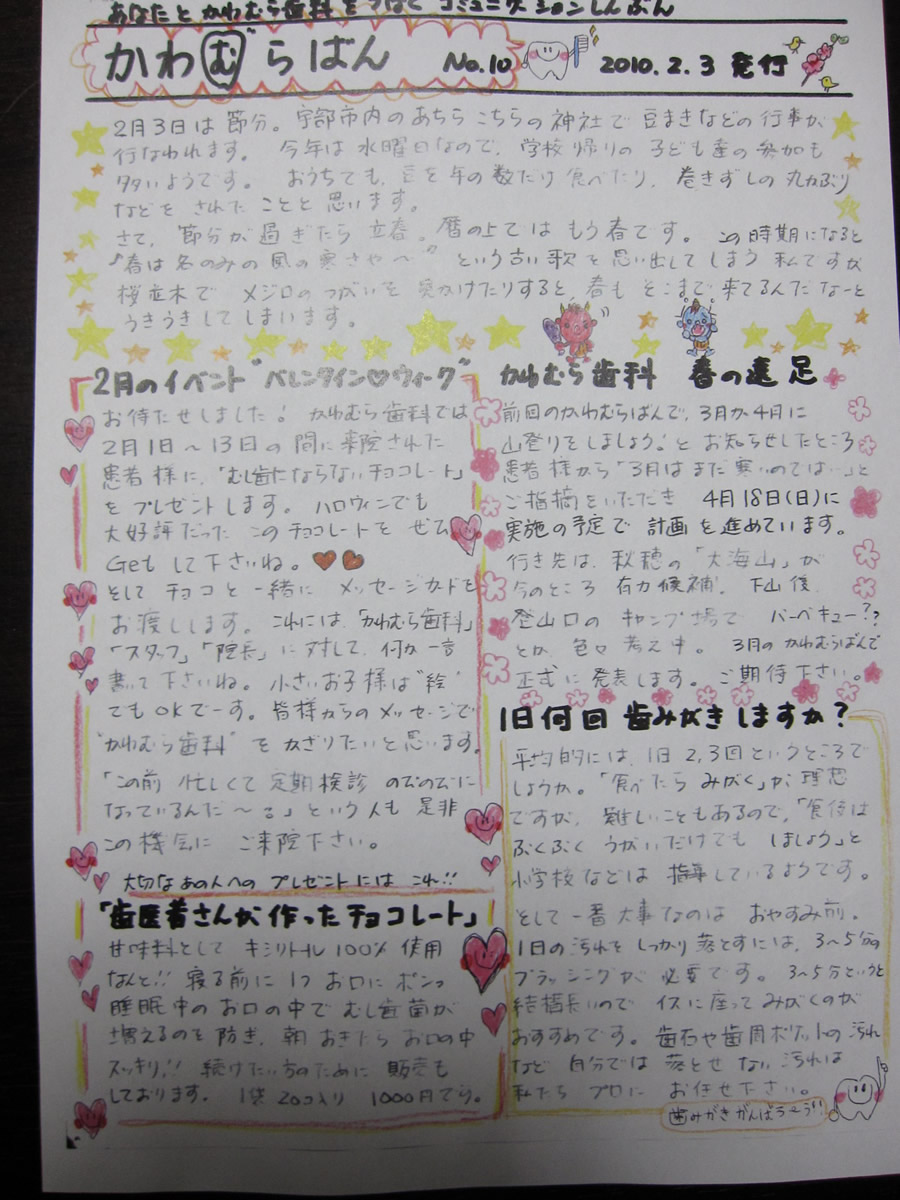 あなたとかわむら歯科をつなぐ コミュニケーションしんぶん
かわむらばん No.10 2010.2.3 発行
2月3日は節分。宇部市内のあちらこちらの神社で豆まきなどの行事が
行なわれます。 今年は水曜日なので、学校帰りの子ども達の参加も
多いようです。 おうちでも、豆を年の数だけ食べたり、巻きずしの丸かぶり
などをされたことと思います。
さて、節分が過ぎたら立春。暦の上ではもう春です。この時期になると
"春は名のみの風の寒さや〜" という古い歌を思い出してしまう私ですが
桜並木でメジロのつがいを見かけたりすると、春もそこまで来てるんだなーと
うきうきしてしまいます。
2月のイベント "バレンタイン♡ウィーク"
お待たせしました! かわむら歯科では
2月1日〜13日の間に来院された
患者様に、「むし歯にならないチョコレート」
をプレゼントします。ハロウィンでも
大好評だったこのチョコレートをぜひ
Getして下さいね。
そしてチョコと一緒にメッセージカードを
お渡しします。これには、「かわむら歯科」
「スタッフ」「院長」に対して、何か一言
書いて下さいね。小さいお子様は"絵"
でもOKでーす。皆様からのメッセージで
"かわむら歯科"をかざりたいと思います。
「この前忙しくて定期検診のびのびに
なっているんだ〜る」という人も是非
この機会にご来院下さい。
大切なあの人へのプレゼントにはこれ!!
「歯医者さんが作ったチョコレート」
甘味料としてキシリトール100%使用
なんと!! 寝る前に1つお口にポンっ
睡眠中のお口の中でむし歯菌が
増えるのを防ぎ、朝おきたらお口の中
スッキリ!! 続けたい方のために販売も
しております。 1袋20コ入り 1000円でーす。
かわむら歯科 春の遠足
前回のかわむらばんで、3月か4月に
山登りをしましょう!とお知らせしたところ
患者様から「3月はまだ寒いのでは…」と
ご指摘をいただき 4月18日(日)に
実施の予定で計画を進めています。
行き先は、秋穂の「大海山」が
今のところ有力候補!下山後、
登山口のキャンプ場でバーベキュー??
とか、色々考え中。3月のかわむらばんで
正式に発表します。ご期待下さい。
1日何回歯みがきしますか?
平均的には、1日2,3回というところで
しょうか。「食べたらみがく」が理想
ですが、難しいこともあるので、「食後は
ぶくぶくうがいだけでもしましょう」と
小学校などは指導しているようです。
そして一番大事なのはおやすみ前。
1日の汚れをしっかり落とすには、3〜5分の
ブラッシングが必要です。3〜5分というと
結構長いのでイスに座ってみがくのが
おすすめです。歯石や歯周ポケットの汚れ
など自分では落とせない汚れは
私たちプロにお任せ下さい。
歯みがきがんばろーう!!